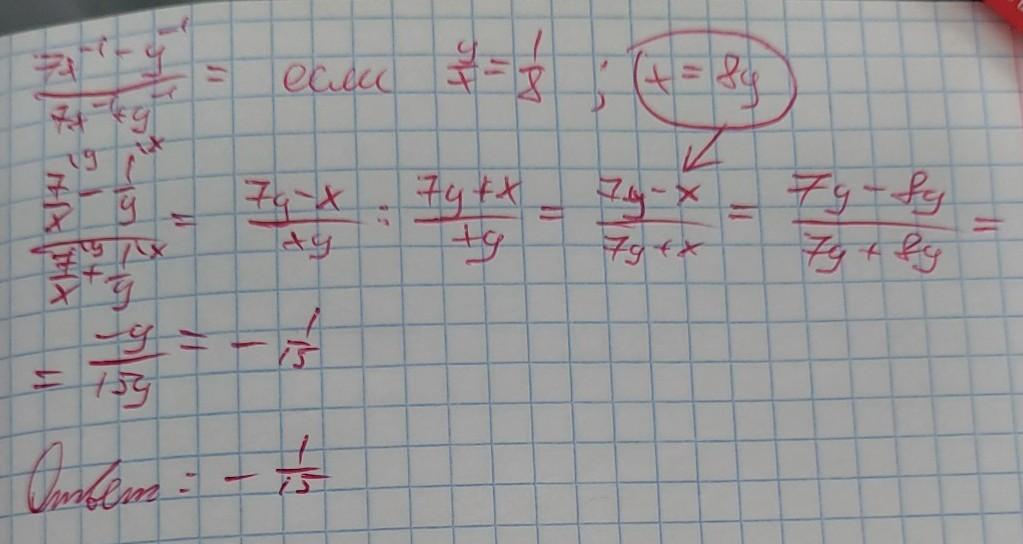 (7x⁻¹ - y⁻¹)/(7x⁻¹ + y⁻¹) = если y/x = 1/8 ; x = 8y
(7/x \y - 1/y \x)/(7/x \y + 1/y \x) = (7y - x)/(xy) : (7y + x)/(xy) = (7y - x)/(7y + x) = (7y - 8y)/(7y + 8y) =
= -y/15y = - 1/15
Ответ: - 1/15